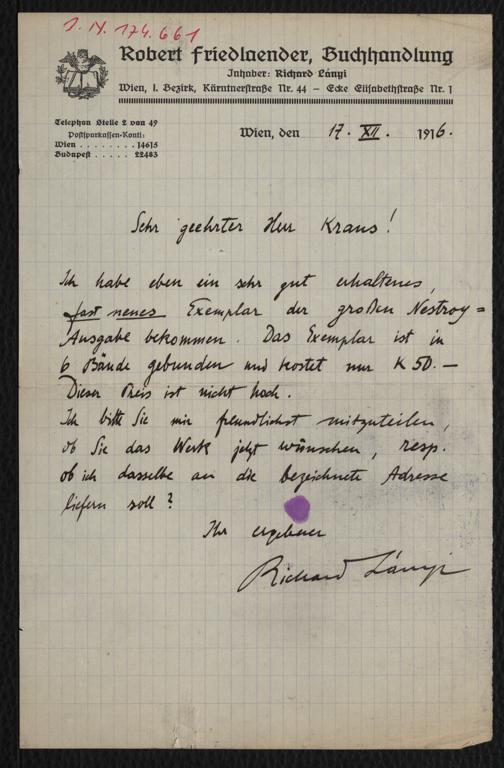 I. N. 174.661
Robert Friedlaender, Buchhandlung
Inhaber: Richard Lányi
Wien, I. Bezirk, Kärntnerstraße Nr. 44 – Ecke Elisabethstraße Nr. 1
Telephon Stelle 2 von 49
Postsparkassen-Konti:
Wien . . . . . . . . 14615
Budapest . . . . . 22483
Wien, den 17. XII. 1916.
Sehr geehrter Herr Kraus!
Ich habe eben ein sehr gut erhaltenes,
fast neues Exemplar der großen Nestroy=
Ausgabe bekommen. Das Exemplar ist in
6 Bände gebunden und kostet nur K 50.—
Dieser Preis ist nicht hoch.
Ich bitte Sie mir freundlichst mitzuteilen,
ob Sie das Werk jetzt wünschen, resp.
ob ich dasselbe an die bezeichnete Adresse
liefern soll?
Ihr ergebener
Richard Lányi